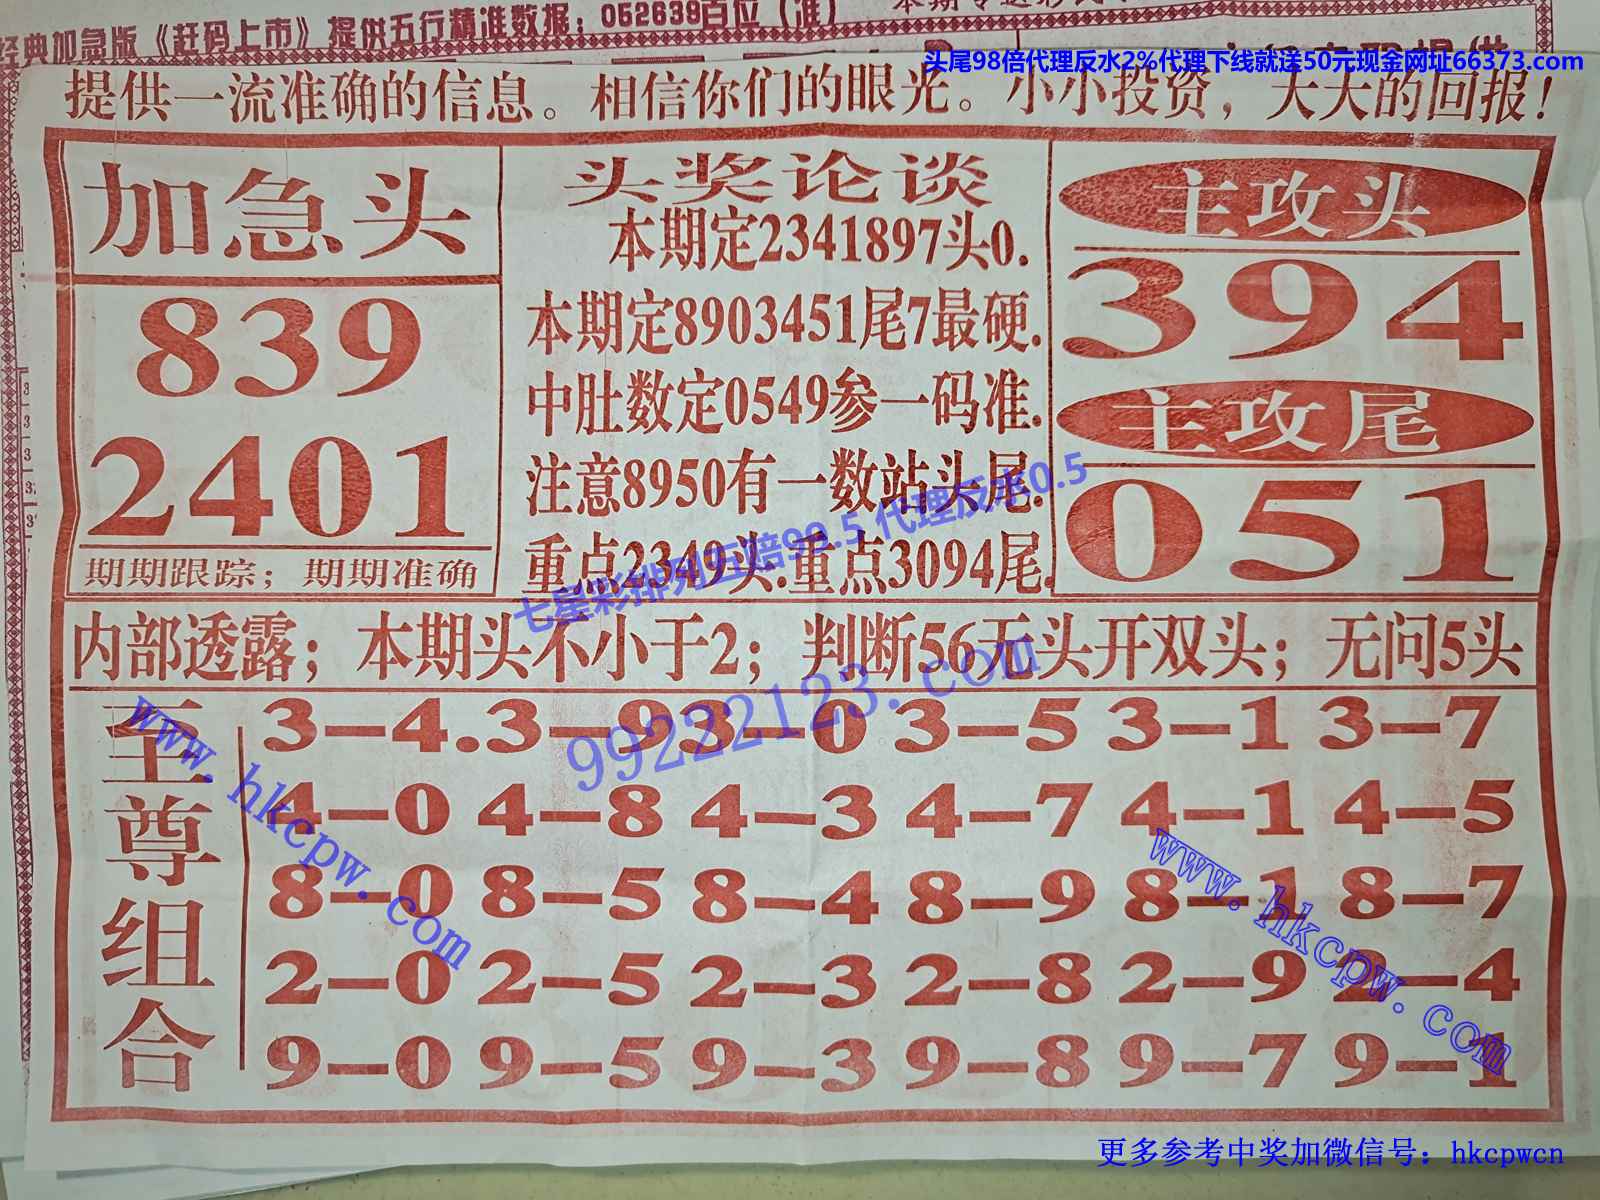 经典加急版《赶码上市》提供五行精准数据：052639百位（准）
头尾98倍代理反水2%代理下线就送50元现金网址66373.com
提供一流准确的信息。相信你们的眼光。小小投资，大大的回报！
加急头
839
2401
期期跟踪；期期准确
头奖论谈
本期定2341897头0.
本期定8903451尾7最硬.
中肚数定0549参一码准.
注意8950有一数站头尾.
重点2349头.重点3094尾.
主攻头
394
主攻尾
051
七星彩排列五赔99.5 代理反水0.5
内部透露；本期头不小于2；判断56无头开双头；无问5头
99222123.com
至尊组合
3—4.3—9 3—0 3—5 3—1 3—7
4—0 4—8 4—3 4—7 4—1 4—5
8—0 8—5 8—4 8—9 8—1 8—7
2—0 2—5 2—3 2—8 2—9 2—4
9—0 9—5 9—3 9—8 9—7 9—1
www.hkcpw.com
www.hkcpw.com
更多参考中奖加微信号：hkcpwcn